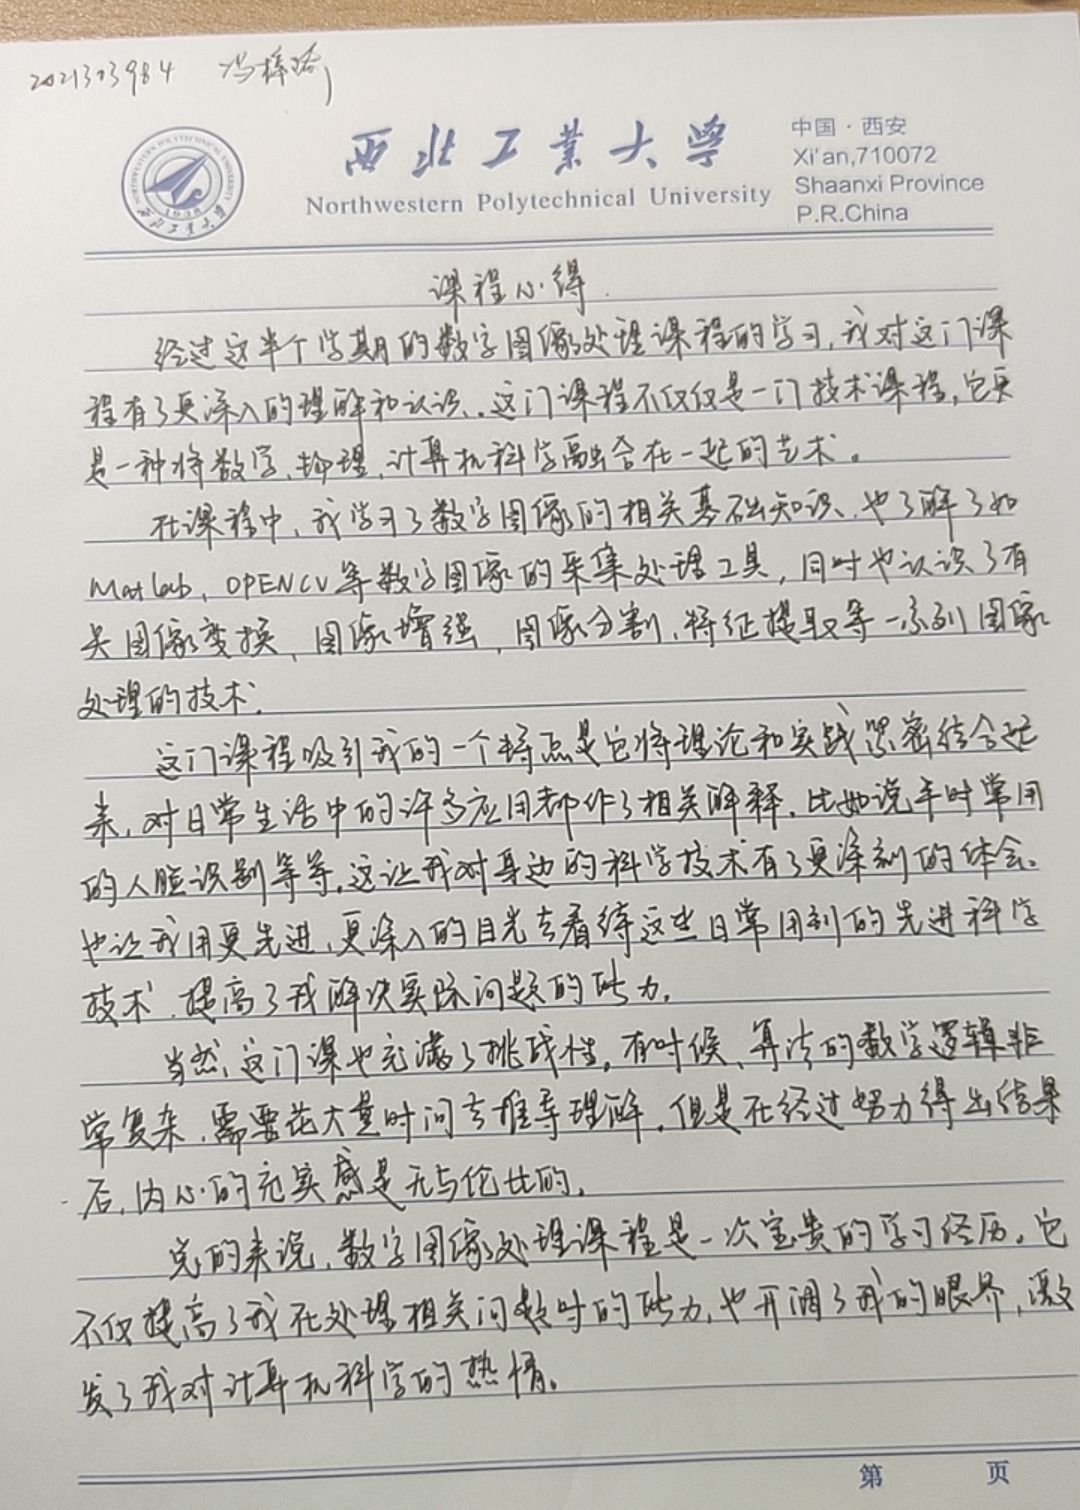 2021303984 冯梓
西北工业大学
Northwestern Polytechnical University
中国·西安
Xi'an,710072
Shaanxi Province
P.R.China
NORTHWESTERN POLYTECHNICAL UNIVERSITY
1938
西北工业大学
课程心得.
经过这半个学期的数字图像处理课程的学习,我对这门课
程有了更深入的理解和认识.这门课程不仅仅是一门技术课程,它更
是一种将数学、物理、计算机科学融合在一起的艺术。
在课程中,我学习了数字图像的相关基础知识、也了解了如
Matlab、OPENCV等数字图像的采集处理工具,同时也认识了有
关图像变换、图像增强,图像分割、特征提取等一系列图像
处理的技术.
这门课程吸引我的一个特点是它将理论和实战紧密结合起
来,对日常生活中的许多应用都作了相关解释.比如说平时常用
的人脸识别等等.这让我对身边的科学技术有了更深刻的体会.
也让我用更先进、更深入的目光去看待这些日常用到的先进科学
技术.提高了我解决实际问题的能力.
当然,这门课也充满了挑战性.有时候、算法的数学逻辑非
常复杂、需要花大量时间去推导理解.但是在经过努力得出结果
后,内心的充实感是无与伦比的.
总的来说,数字图像处理课程是一次宝贵的学习经历.它
不仅提高了我在处理相关问题时的能力,也开阔了我的眼界,激
发了我对计算机科学的热情.
第 页